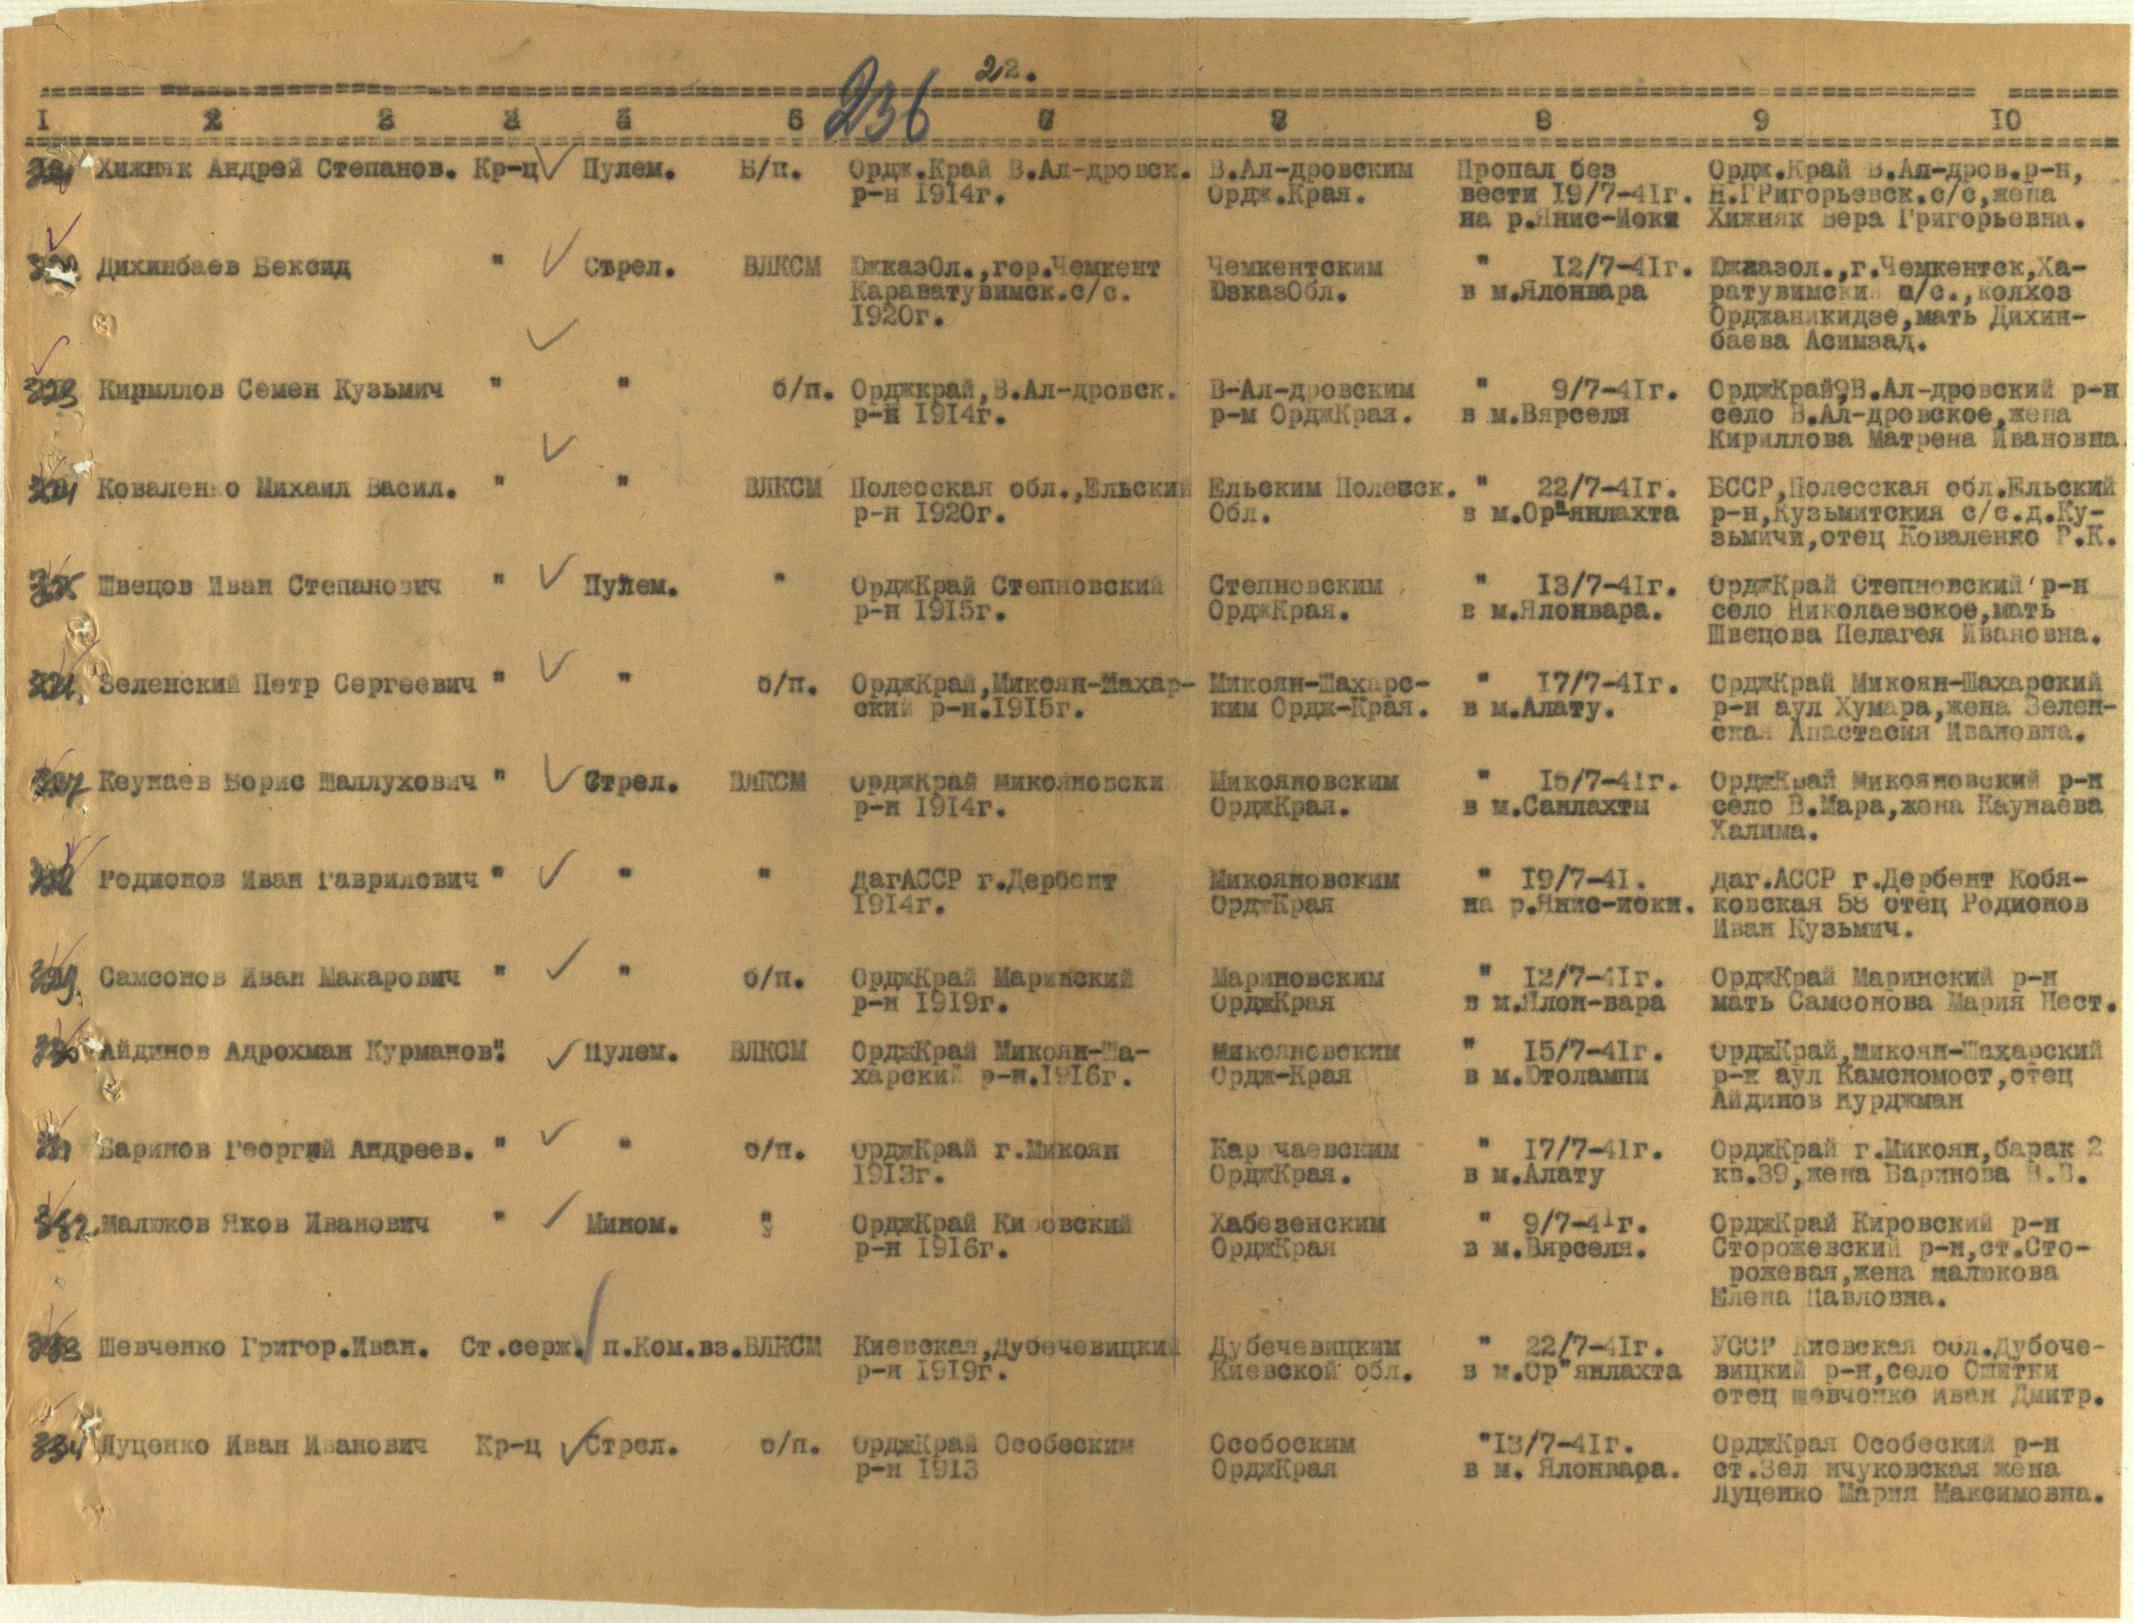 22.
236
I 2 3 4 5 6 7 8 9 10
Хижняк Андрей Степанов. Кр-ц Пулем. Б/п. Ордж.Край В.Ал-дровск. В.Ал-дровским Пропал без Ордж.Край В.Ал-дров.р-н,
р-н 1914г. Ордж.Края. вести 19/7-41г. Н.ГРигорьевск.с/с,жена
на р.Янис-Иоки Хижняк Вера Григорьевна.
Дихинбаев Бексид " Стрел. ВЛКСМ ЮжказОл.,гор.Чемкент Чемкентским " 12/7-41г. Южказол.,г.Чемкентск,Ха-
Караватувимск.с/с. ЮзказОбл. в м.Ялонвара ратувимски с/с.,колхоз
1920г. Орджаникидзе,мать Дихин-
баева Асимзад.
323 Кирмллов Семен Кузьмич " " б/п. Орджкрай,В.Ал-дровск. В-Ал-дровским " 9/7-41г. ОрджКрай9В.Ал-дровский р-н
р-н 1914г. р-м ОрджКрая. в м.Вярселя село В.Ал-дровское,жена
Кириллова Матрена Ивановна
324 Коваленко Михаил Васил. " " ВЛКСМ Полесская обл.,Ельский Ельским Полесск. " 22/7-41г. БССР,Полесская обл.Ельский
р-н 1920г. Обл. в м.Ор"янлахта р-н,Кузьмитския с/с.д.Ку-
зьмичи,отец Коваленко Р.К.
325 Швецов Иван Степанович " Пулем. " ОрджКрай Степновский Степновским " 13/7-41г. ОрджКрай Степновский р-н
р-н 1915г. ОрджКрая. в м.Ялонвара. село Николаевское,мать
Швецова Пелагея Ивановна.
326. Зеленский Петр Сергеевич " " б/п. ОрджКрай,Микоян-Шахар- Микоян-Шахарс- " 17/7-41г. ОрджКрай Микоян-Шахарский
ский р-н.1915г. ким Ордж-Края. в м.Алату. р-н аул Хумара,жена Зелен-
ская Анастасия Ивановна.
327 Кеунаев Борис Шаллухович " Стрел. ВЛКСМ ОрджКрай Микояновски Микояновским " 15/7-41г. ОрджКрай Микояновский р-н
р-н 1914г. ОрджКрая. в м.Санлахты село В.Мара,жена Каунаева
Халима.
328 Родионов Иван Гаврилович " " " дагАССР г.Дербент Микояновским " 19/7-41. даг.АССР г.Дербент Кобя-
1914г. ОрджКрая на р.Янис-иоки. ковская 58 отец Родионов
Иван Кузьмич.
329. Самсонов Иван Макарович " " б/п. ОрджКрай Маринский Мариновским " 12/7-41г. ОрджКрай Маринский р-н
р-н 1919г. ОрджКрая в м.Ялон-вара мать Самсонова Мария Нест.
330 Айдинов Адрохман Курманов". Пулем. ВЛКСМ ОрджКрай Микоян-Ша- Микояновским " 15/7-41г. ОрджКрай,Микоян-Шахарский
харский р-н.1916г. Ордж-Края в м.Ютолампи р-н аул Каменомост,отец
Айдинов Курджман
331 Баринов Георгий Андреев. " " б/п. ОрджКрай г.Микоян Кар чаевским " 17/7-41г. ОрджКрай г.Микоян,барак 2
1913г. ОрджКрая. в м.Алату кв.39,жена Баринова В.В.
332. Малюков Яков Иванович " Мином. " ОрджКрай Кировский Хабезенским " 9/7-41г. ОрджКрай Кировский р-н
р-н 1916г. ОрджКрая в м.Вярселя. Сторожевский р-н,ст.Сто-
рожевая,жена малюкова
Елена Павловна.
333 Шевченко Григор.Иван. Ст.серж. п.Ком.вз. ВЛКСМ Киевская,Дубечевицкий Дубечевицким " 22/7-41г. УССР Киевская обл.Дубоче-
р-н 1919г. Киевской обл. в м.Ор"янлахта вицкий р-н,село Ошитки
отец шевченко иван Дмитр.
334 Луценко Иван Иванович Кр-ц Стрел. б/п. ОрджКрай Особеским Особоским "13/7-41г. ОрджКрая Особеский р-н
р-н 1913 ОрджКрая в м. Ялонвара. ст.Зел нчуковская жена
Луценко Мария Максимовна.